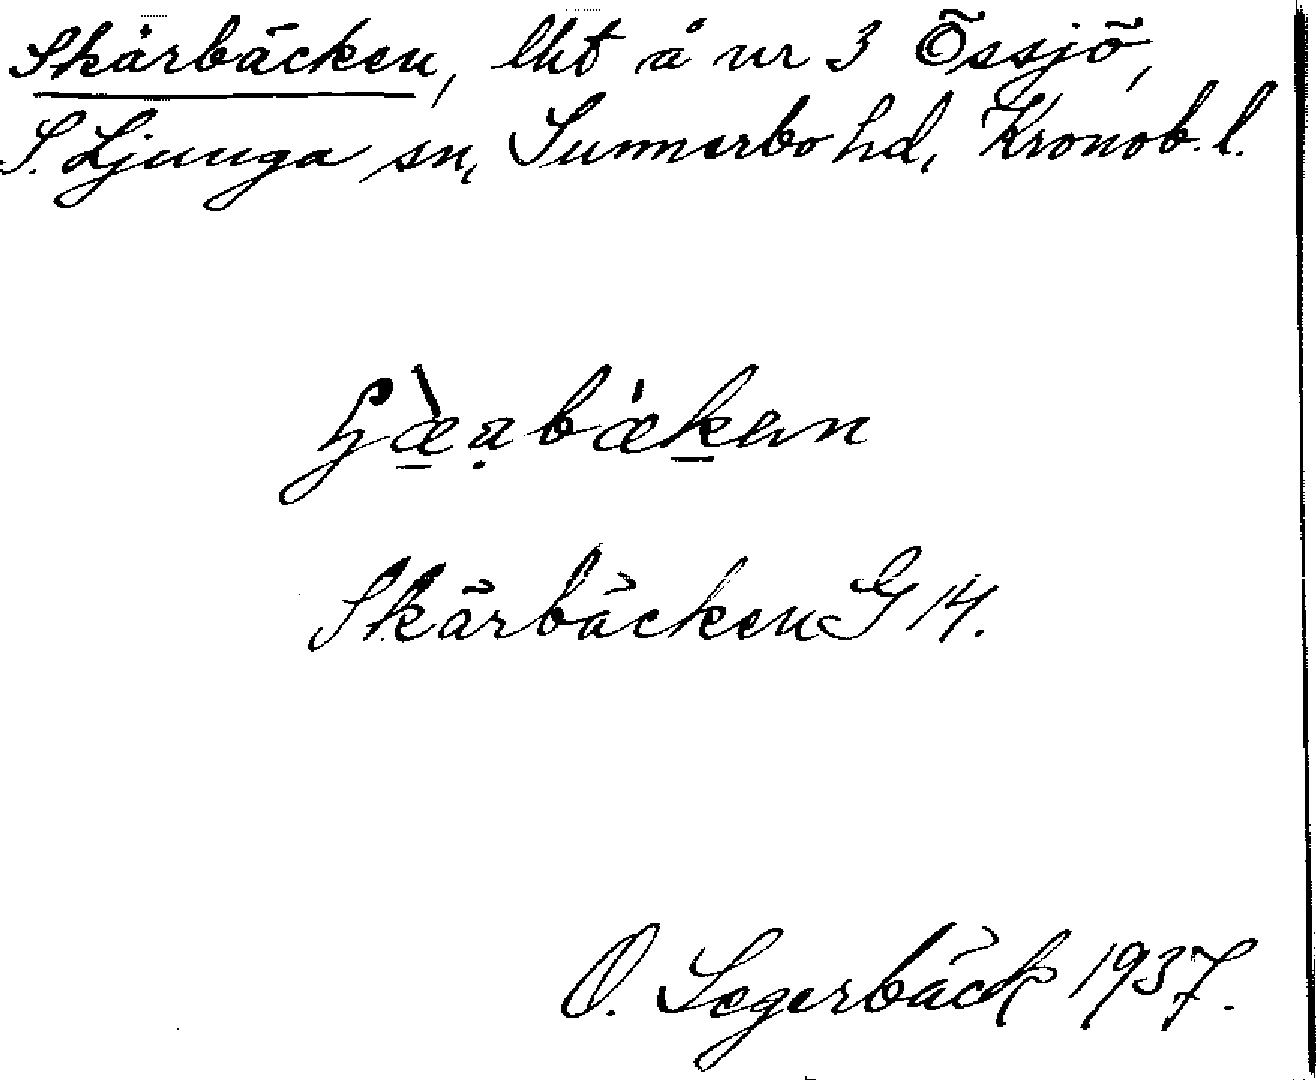 Skärbäcken, lht å nr 3 Össjö,
S. Ljunga sn, Sunnerbo hd, Kronob. l.
Skärbäcken G 14.
O. Segerbäck 1937.